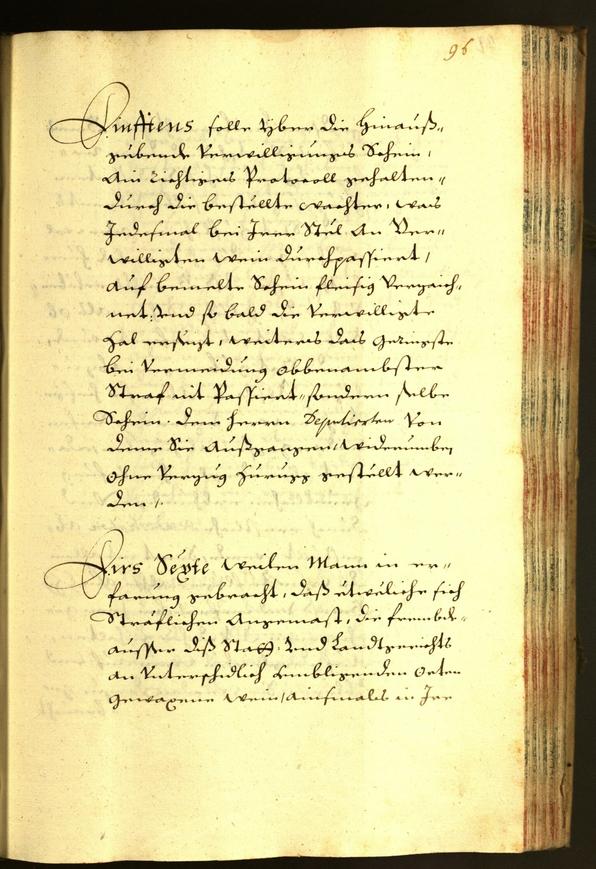 96
Finfftens solle yber die hinauß„
gebende Verwilligungs Schein,
Ain richtiges Protocoll gehalten„
durch die bestellte wachter, was
Jedesmal bei Irer Stöl an Ver„
willigten wein durchpassiert,
auf bemelte Schein fleisig verzaich„
net, und so bald die verwilligte
Zal ersezt, weiters das Geringste
bei vermeidung obbenambster
Straf nit Passiert, sondern selbe
Schein dem herrn Deputierten von
deme Sie Außgangen, widerumben
ohne verzug zurugg gestellt wer„
den.
Firs Sexte weilen Mann in er„
farung gebracht, daß etweliche sich
Sträflichen Angemast, die frembde„
ausser diß Statt: und Landtgerichts
an unterschidlich umbligenden Orten
gewaxene wein, ainsmals in Ire